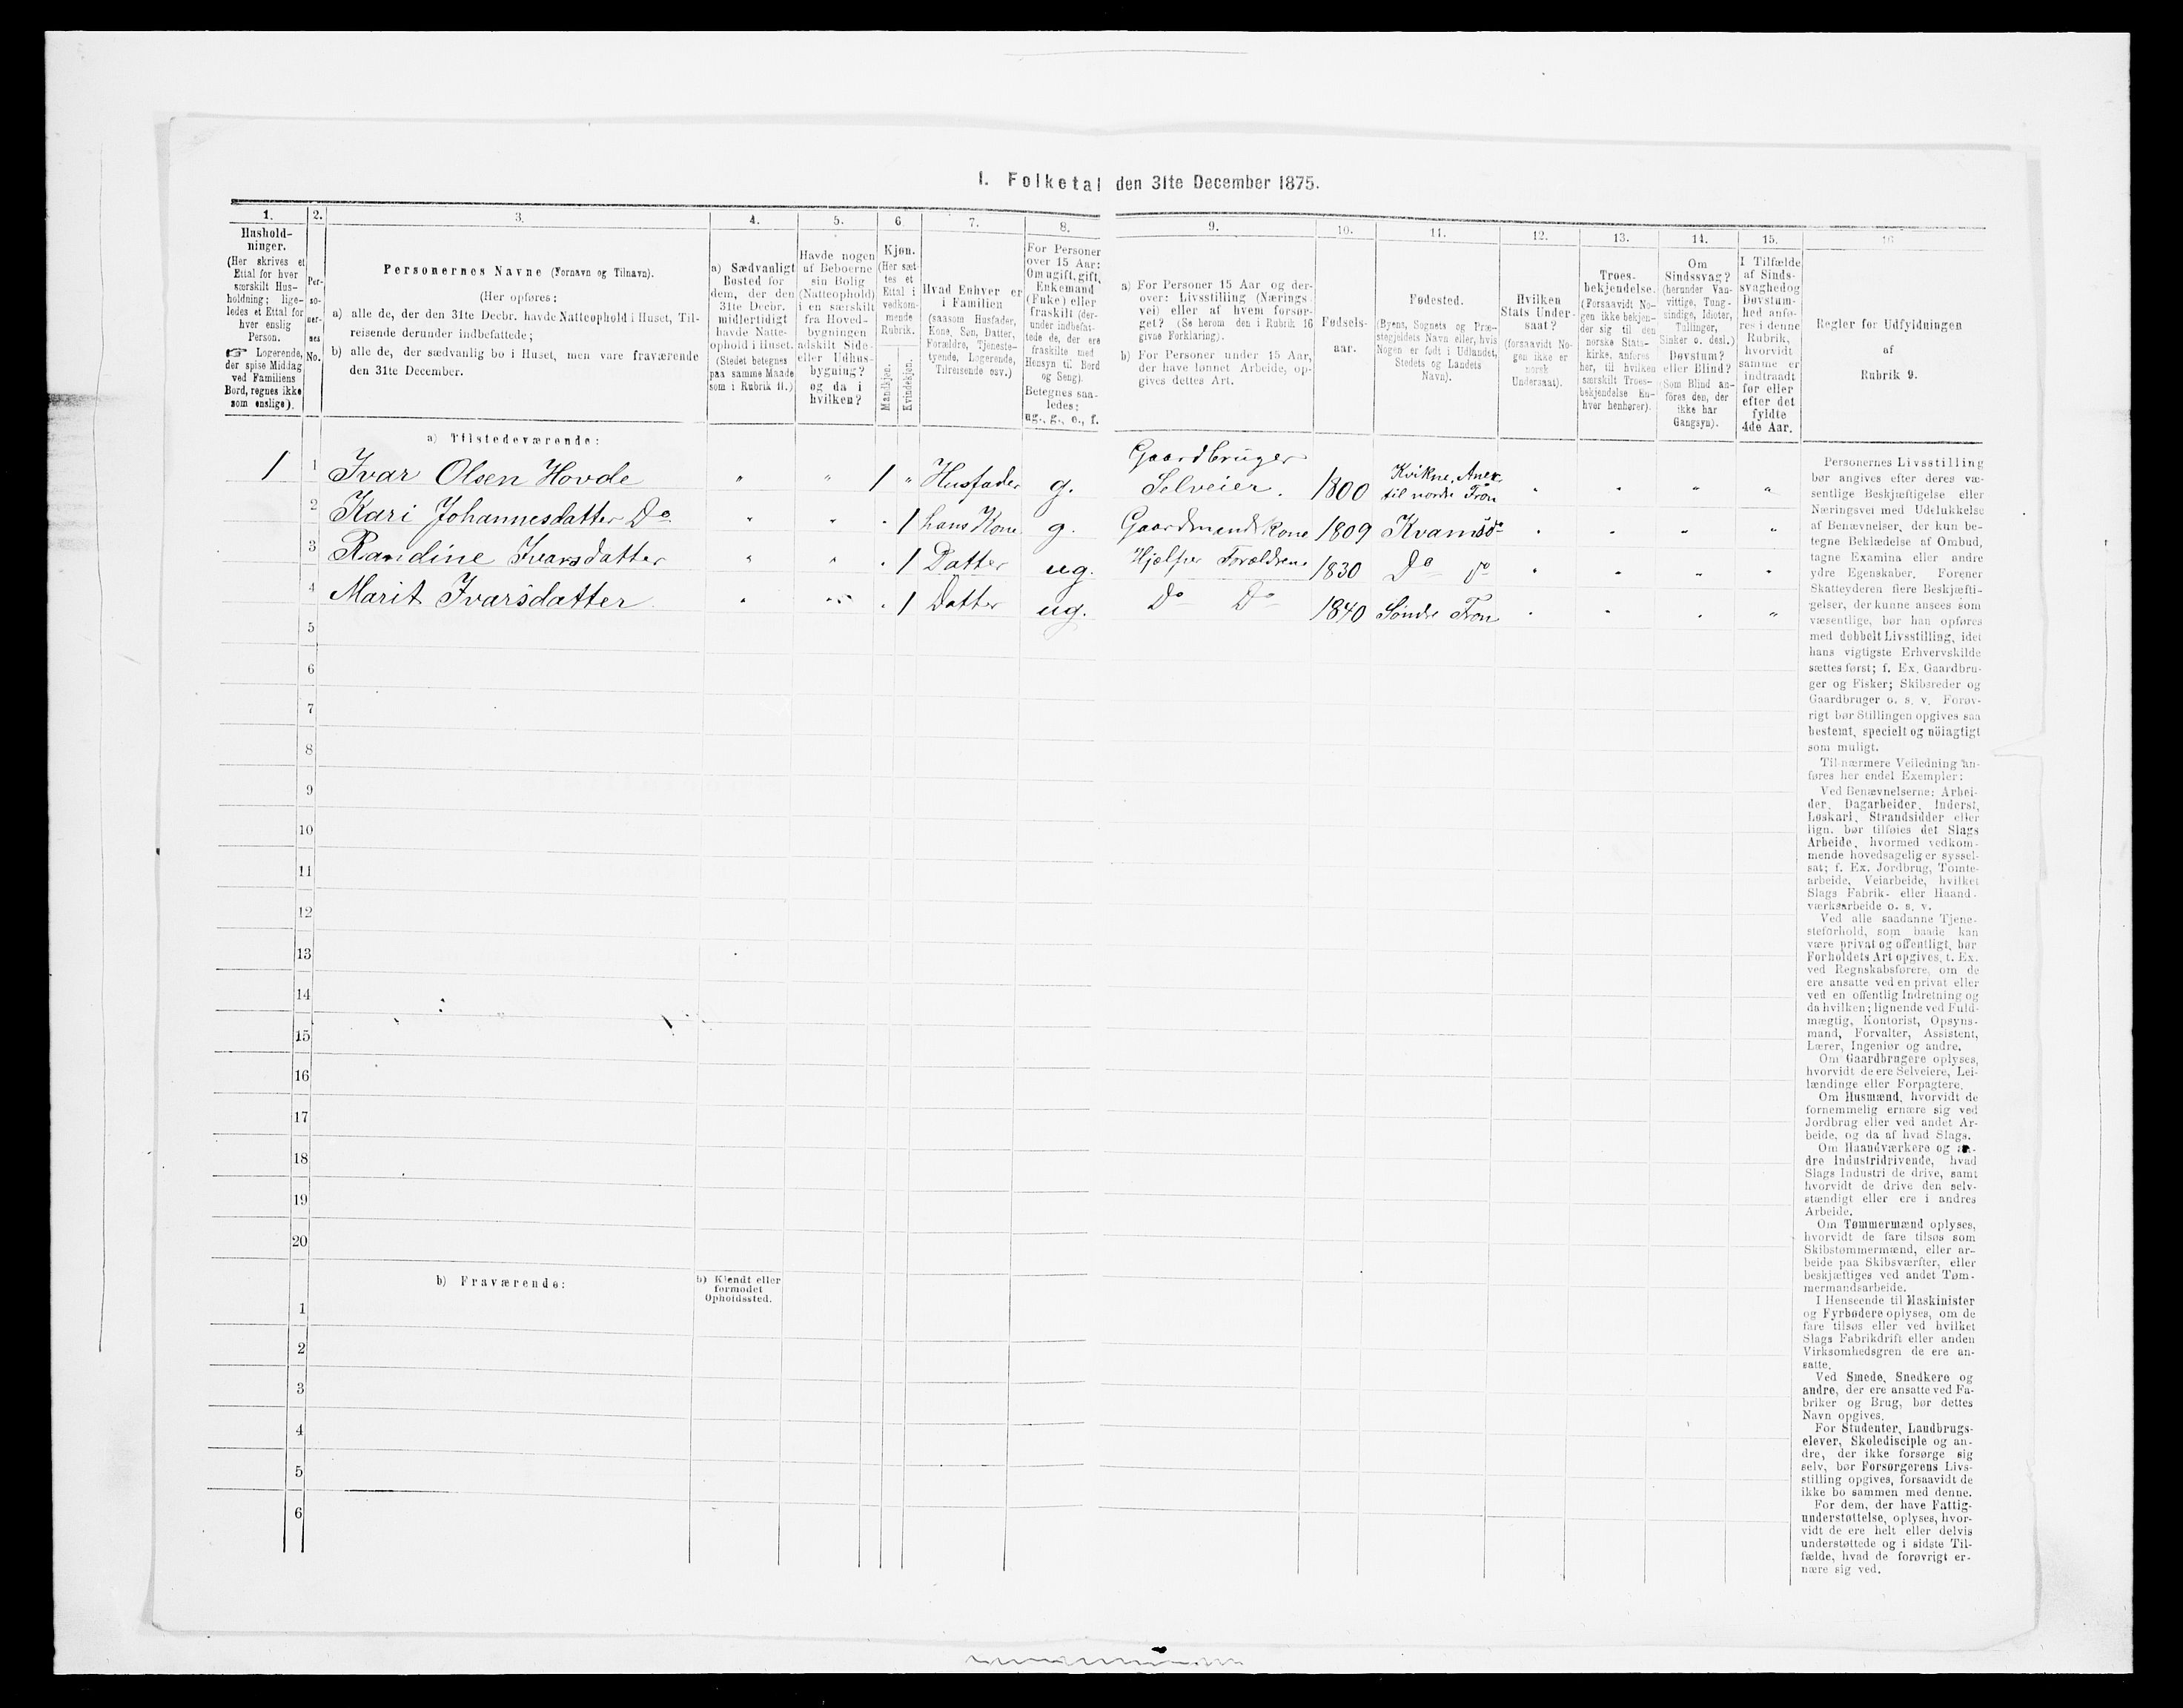 I. Folketal den 31te December 1875.
1. 2. 3. 4. 5. 6 7. 8. 9. 10. 11. 12. 13. 14. 15. 16
Hushold-
ninger.
(Her skrives et
Ettal for hver
særskilt Hus-
holdning; lige-
ledes et Ettal for
hver enslig
Person.
☞ Logerende,
der spise Middag
ved Familiens
Bord, regnes ikke
som enslige).
Per-
so-
ner-
nes
No.
Personernes Navne (Fornavn og Tilnavn).
(Her opføres:
a) alle de, der den 31te Decbr. havde Natteophold i Huset, Til-
reisende derunder indbefattede;
b) alle de, der sædvanlig bo i Huset, men vare fraværende
den 31te December.
a) Sædvanligt
Bosted for
dem, der den
31te Decbr.
midlertidigt
havde Natte-
ophold i Huset.
(Stedet betegnes
paa samme Maade
som i Rubrik 11.)
Havde nogen
af Beboerne
sin Bolig
(Natteophold)
i en særskilt
fra Hoved-
bygningen
adskilt Side-
eller Udhus-
bygning?
og da i
hvilken?
Kjøn.
(Her sæt-
tes et
Ettal i
vedkom-
mende
Rubrik.
Mandkjøn.
Kvindekjøn.
Hvad Enhver er
i Familien
(saasom Husfader,
Kone, Søn, Datter,
Forældre, Tjeneste-
tyende, Logerende,
Tilreisende osv.)
For Personer
over 15 Aar:
Om ugift, gift,
Enkemand
(Enke) eller
fraskilt (der-
under indbefat-
tede de, der ere
fraskilte med
Hensyn til Bord
og Seng).
Betegnes saa-
ledes:
ug., g., e., f.
a) For Personer 15 Aar og der-
over: Livsstilling (Nærings-
vei) eller af hvem forsør-
get? (Se herom den i Rubrik 16
givne Forklaring).
b) For Personer under 15 Aar,
der have lønnet Arbeide, op-
gives dettes Art.
Fødsels-
aar.
Fødested.
(Byens, Sognets og Præ-
stegjeldets Navn eller, hvis
Nogen er født i Udlandet,
Stedets og Landets
Navn).
Hvilken
Stats Under-
saat?
(forsaavidt No-
gen ikke er
norsk
Undersaat).
Troes-
bekjendelse.
(Forsaavidt No-
gen ikke bekjen-
der sig til den
norske Stats-
kirke, anføres
her, til hvilken
særskilt Troes-
bekjendelse En-
hver henhører).
Om
Sindssvag?
(herunder Van-
vittige, Tung-
sindige, Idioter,
Tullinger,
Sinker o. desl.)
Døvstum?
eller Blind?
(Som Blind an-
føres den, der
ikke har
Gangsyn).
I Tilfælde
af Sinds-
svaghed og
Døvstum-
hed anfø-
res i denne
Rubrik,
hvorvidt
samme er
indtraadt
før eller
efter det
fyldte
4de Aar.
Regler for Udfyldningen
af
Rubrik 9.
a) Tilstedeværende:
1 1 Ivar Olsen Hovde " " 1 " Husfader g. Gaardbruger Selveier. 1800 Kvikne, Anex til nordre Fron " " " "
2 Kari Johannesdatter Do " " " 1 hans Kone g. Gaardmands kone 1809 Kvams do " " " "
3 Randine Ivarsdatter " " " 1 Datter ug. Hjælper Forældrene 1830 Do do " " " "
4 Marit Ivarsdatter " " " 1 Datter ug. Do Do 1840 Søndre Fron " " " "
5
6
7
8
9
10
11
12
13
14
15
16
17
18
19
20
b) Fraværende:
b) Kjendt eller
formodet
Opholdssted.
1
2
3
4
5
6
Personernes Livsstilling
bør angives efter deres væ-
sentlige Beskjæftigelse eller
Næringsvei med Udelukkelse
af Benævnelser, der kun be-
tegne Beklædelse af Ombud,
tagne Examina eller andre
ydre Egenskaber. Forener
Skatteyderen flere Beskjæfti-
gelser, der kunne ansees som
væsentlige, bør han opføres
med dobbelt Livsstilling, idet
hans vigtigste Erhvervskilde
sættes først; f. Ex. Gaardbru-
ger og Fisker; Skibsreder og
Gaardbruger o. s. v. Forøv-
rigt bør Stillingen opgives saa
bestemt, specielt og nöiagtigt
som muligt.
Til nærmere Veiledning an-
føres her endel Exempler:
Ved Benævnelserne: Arbei-
der, Dagarbeider, Inderst,
Løskarl, Strandsidder eller
lign. bør tilføies det Slags
Arbeide, hvormed vedkom-
mende hovedsagelig er syssel-
sat; f. Ex. Jordbrug, Tomte-
arbeide, Veiarbeide, hvilket
Slags Fabrik- eller Haand-
værksarbeide o. s. v.
Ved alle saadanne Tjene-
steforhold, som baade kan
være privat og offentligt, bør
Forholdets Art opgives, t. Ex.
ved Regnskabsførere, om de
ere ansatte ved en privat eller
ved en offentlig Indretning og
da hvilken; lignende ved Fuld-
mægtig, Kontorist, Opsyns-
mand, Forvalter, Assistent,
Lærer, Ingeniør og andre.
Om Gaardbrugere oplyses,
hvorvidt de ere Selveiere, Lei-
lændinge eller Forpagtere.
Om Husmænd, hvorvidt de
fornemmelig ernære sig ved
Jordbrug eller ved andet Ar-
beide, og da af hvad Slags.
Om Haandværkere og an-
dre Industridrivende, hvad
Slags Industri de drive, samt
hvorvidt de drive den selv-
stændigt eller ere i andres
Arbeide.
Om Tømmermænd oplyses,
hvorvidt de fare tilsøs som
Skibstømmermænd, eller ar-
beide paa Skibsværfter, eller
beskjæftiges ved andet Tøm-
mermandsarbeide.
I Henseende til Maskinister
og Fyrbødere oplyses, om de
fare tilsøs eller ved hvilket
Slags Fabrikdrift eller anden
Virksomhedsgren de ere an-
satte.
Ved Smede, Snedkere og
andre, der ere ansatte ved Fa-
briker og Brug, bør dettes
Navn opgives.
For Studenter, Landbrugs-
elever, Skoledisciple og an-
dre, der ikke forsørge sig
selv, bør Forsørgerens Livs-
stilling opgives, forsaavidt de
ikke bo sammen med denne.
For dem, der have Fattig-
understøttelse, oplyses, hvor-
vidt de ere helt eller delvis
understøttede og i sidste Til-
fælde, hvad de forøvrigt er-
nære sig ved.